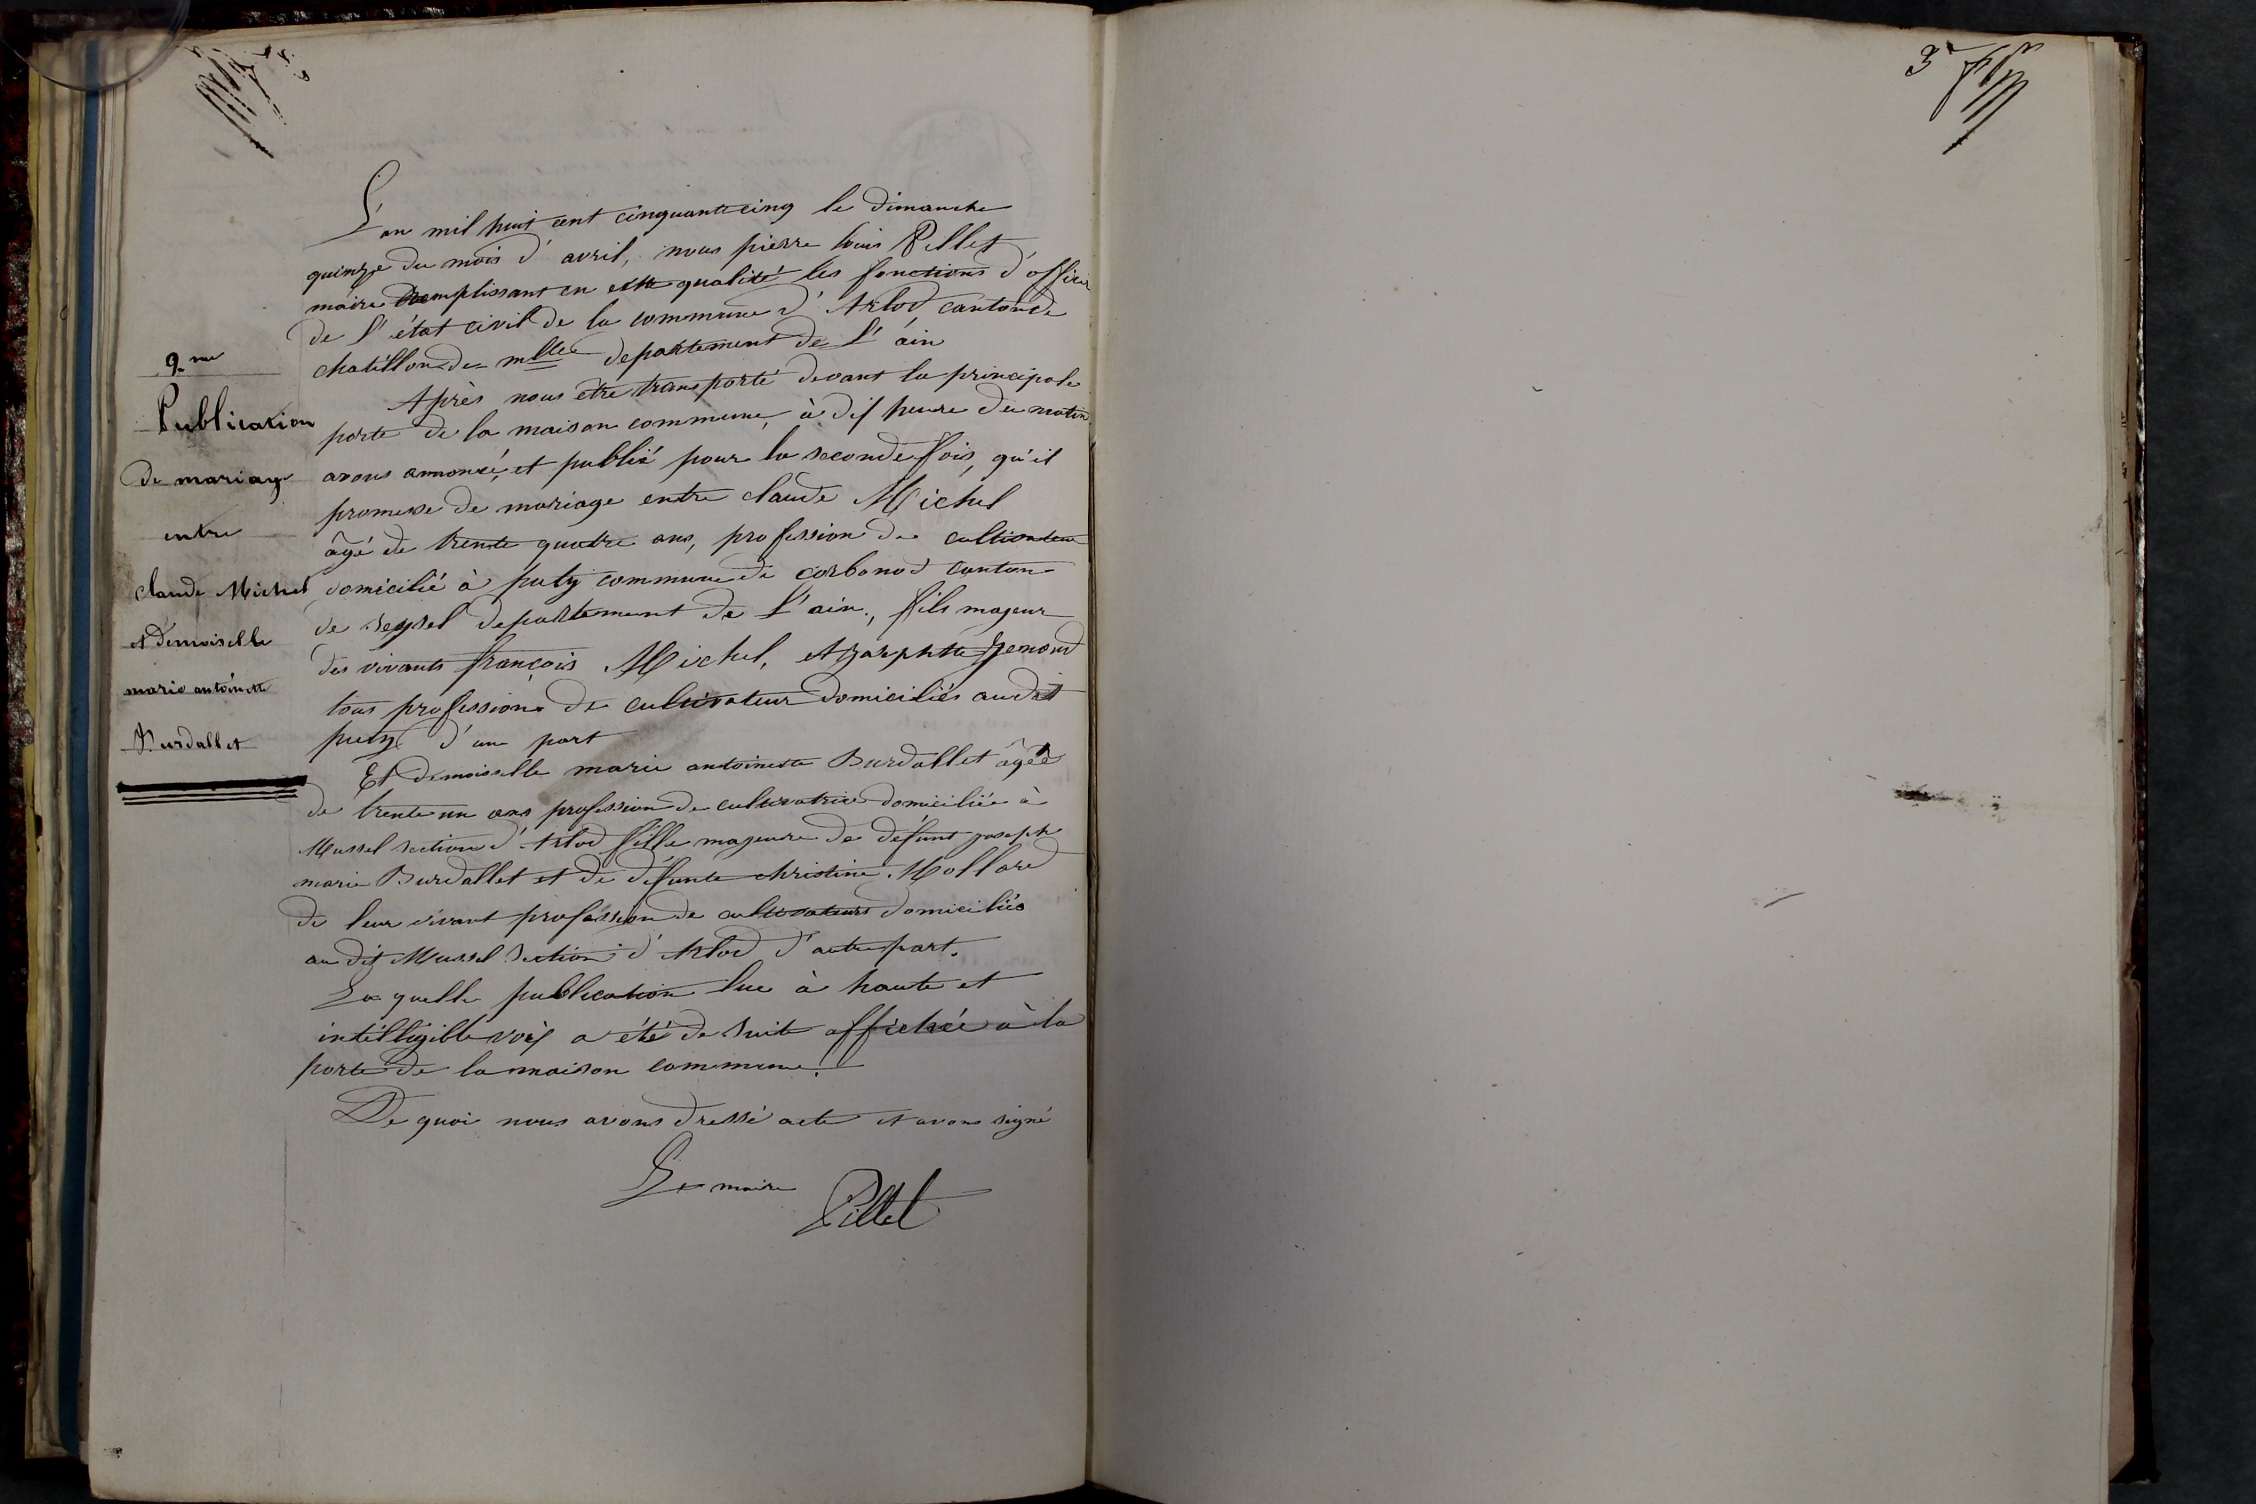 9.me
Publication
de mariage
entre
claude Michel
et Demoiselle
marie antoinette
Burdallet
L'an mil huit cent cinquante cinq le dimanche
quinze du mois d'avril, nous pierre louis Pillet
maire remplissant en cette qualité les fonctions d'officier
de l'état civil de la commune d'Arlod canton de
chatillon de mlle departement de l'ain
Après nous être transporté devant la principale
porte de la maison commune, à dix heure du matin
avons annoncé, et publié pour la seconde fois, qu'il
promesse de mariage entre claude Michel
âgé de trente quatre ans, profession de cultivateur
domicilié à puty commune de corbonod canton
de seyssel departement de l'ain, fils majeur
des vivants françois Michel, et josephtte
tous profession de cultivateur domiciliés audit
puty d'une part
Et demoiselle marie antoinette Burdallet âgée
de trente un ans profession de cultivatrice domiciliée à
Mussel section d'Arlod fille majeure de défunt joseph
marie Burdallet et de défunte christine Mollard
de leur vivant profession de cultivateurs domiciliés
au dit Mussel section d'Arlod d'autre part.
La quelle publication lue à haute et
intélligible voix a été de suite affichée à la
porte de la maison commune.
De quoi nous avons dressé acte et avons signé
Le maire
Pillet
3